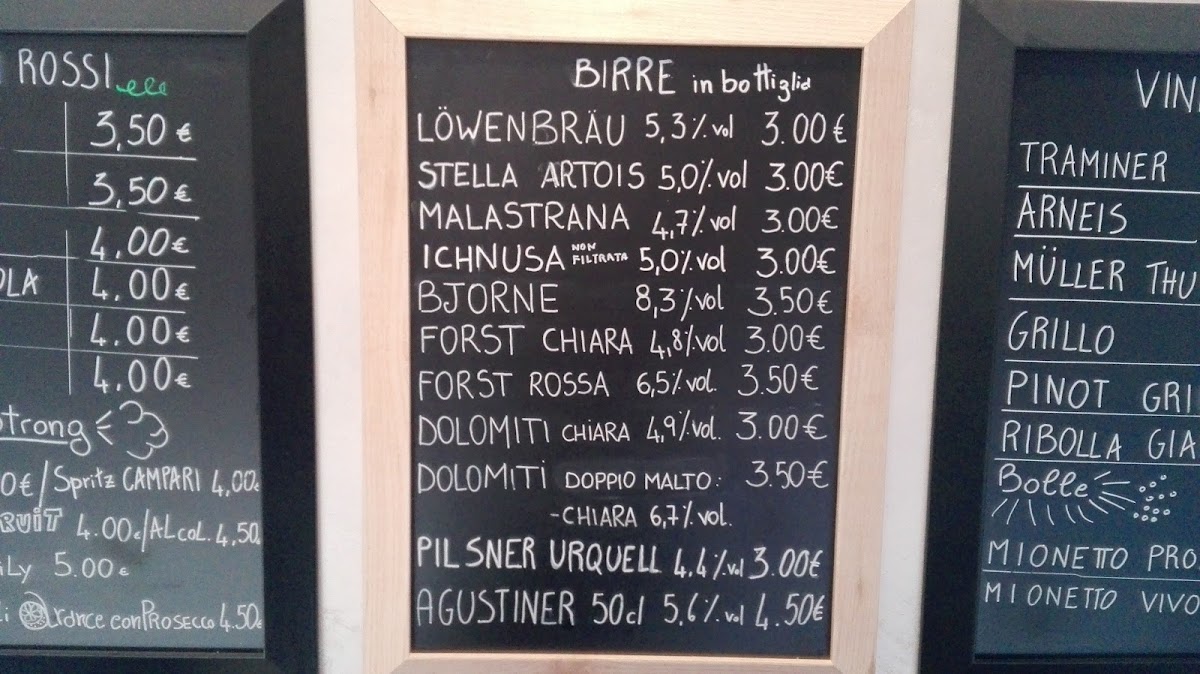 ROSSI
3,50 €
3,50 €
4,00 €
4,00 €
4,00 €
4,00 €
trong
0€/Spritz CAMPARI 4,00€
RUIT 4.00€/ALCOL. 4,50
ily 5.00€
rance con PROSECCO 4.50€
BIRRE in bottiglia
LÖWENBRÄU 5,3% vol 3.00€
STELLA ARTOIS 5,0% vol 3.00€
MALASTRANA 4,7% vol 3.00€
ICHNUSA NON FILTRATA 5,0% vol 3.00€
BJORNE 8,3% vol 3.50€
FORST CHIARA 4,8% vol 3.00€
FORST ROSSA 6,5% vol. 3.50€
DOLOMITI CHIARA 4,9% vol. 3.00€
DOLOMITI DOPPIO MALTO: 3.50€
-CHIARA 6,7% vol.
PILSNER URQUELL 4,4% vol 3.00€
AGUSTINER 50cl 5,6% vol 4.50€
VIN
TRAMINER
ARNEIS
MÜLLER THU
GRILLO
PINOT GRI
RIBOLLA GIA
Bolle
MIONETTO PRO
MIONETTO VIVO